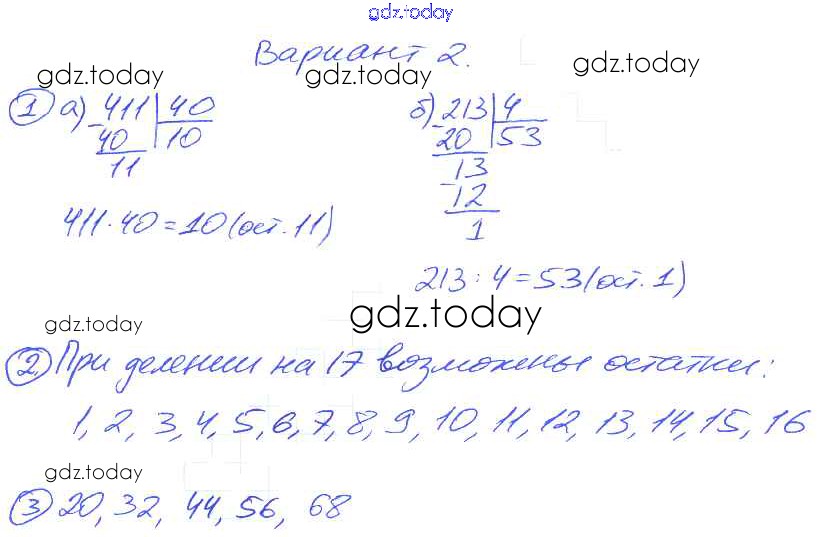 gdz.today
Вариант 2.
gdz.today gdz.today gdz.today
① а) 411 | 40 б) 213 | 4
40 10 20 53
11 13
12
411·40=10(ост.11) 1
213:4=53(ост.1)
gdz.today gdz.today
② При делении на 17 возможены остатки:
1, 2, 3, 4, 5, 6, 7, 8, 9, 10, 11, 12, 13, 14, 15, 16
gdz.today
③ 20, 32, 44, 56, 68